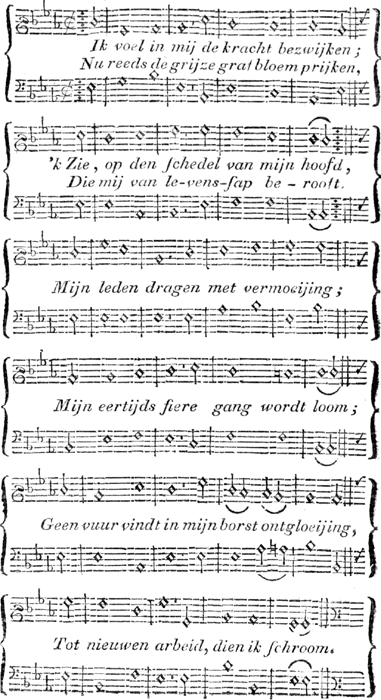 Ik voel in mij de kracht bezwijken;
Nu reeds de grijze grafbloem prijken,
'k Zie, op den ſchedel van mijn hoofd,
Die mij van le-vens-ſap be-rooft.
Mijn leden dragen met vermoeijing;
Mijn eertijds fiere gang wordt loom;
Geen vuur vindt in mijn borst ontgloeijing,
Tot nieuwen arbeid, dien ik ſchroom.